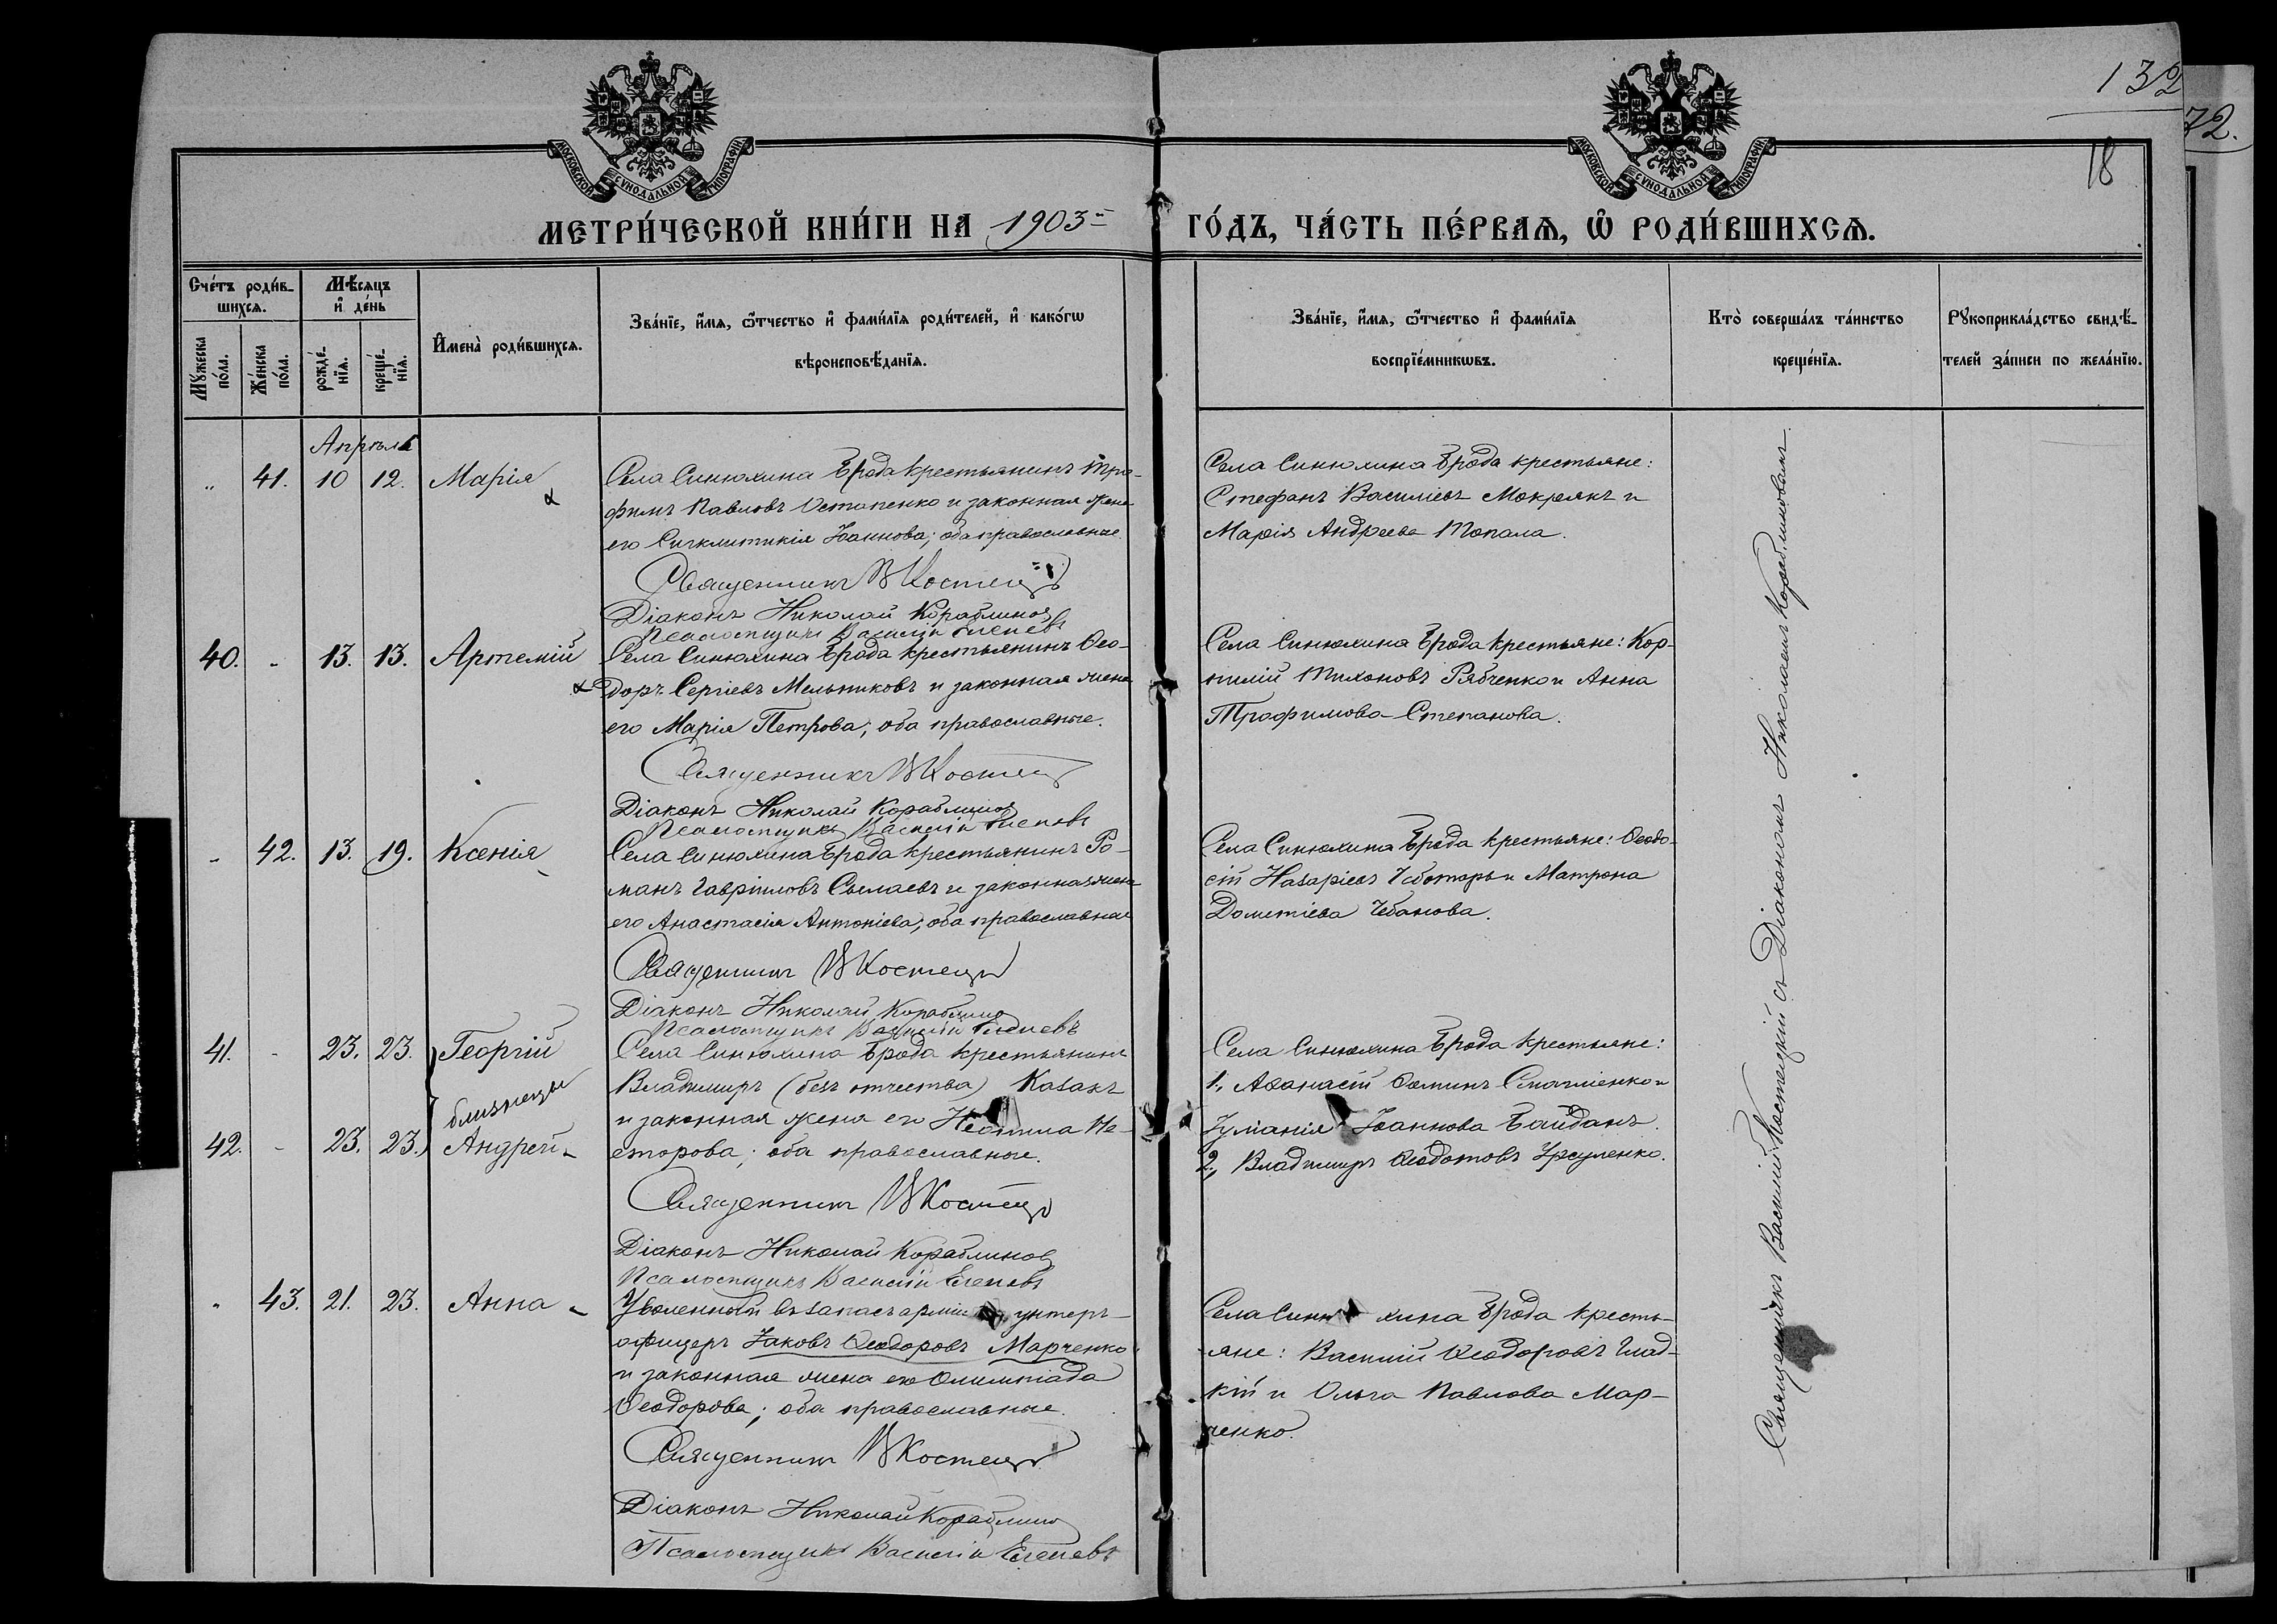 132
72.
18
МОСКОВСКОЙ СѴНОДАЛЬНОЙ ТИПОГРАФІИ
МОСКОВСКОЙ СѴНОДАЛЬНОЙ ТИПОГРАФІИ
МЕТРИ́ЧЕСКОЙ КНИ́ГИ НА 1903 ГО́ДЪ, ЧА́СТЬ ПЕ́РВАѦ, Ѿ РОДИ́ВШИХСѦ.
Сче́тъ роди́в-
шихсѧ.
Мѣ́сѧцъ
и҆ де́нь
Мꙋ́жеска
по́ла.
Же́нска
по́ла.
рожде́-
нїѧ.
креще́-
нїѧ.
И҆мена̀ роди́вшихсѧ.
Зва́нїе, и҆́мѧ, ѻ҆́тчество и҆ фами́лїѧ роди́телей, и҆ како́гѡ
вѣроисповѣ́данїѧ.
Зва́нїе, и҆́мѧ, ѻ҆́тчество и҆ фами́лїѧ
воспрїе́мникѡвъ.
Кто̀ соверша́лъ та́инство
креще́нїѧ.
Рꙋкоприкла́дство свидѣ́-
телей за́писи по жела́нїю.
Апрѣль
„ 41. 10 12. Марія
Села Синюхина Брода крестьянинъ Тро-
фимъ Павловъ Остапенко и законная жена
его Сигклитикія Іоаннова; оба православные.
Священникъ В Костецкій
Діаконъ Николай Кораблинов
Псаломщикъ Василій
Села Синюхина Брода крестьяне:
Стефанъ Василіевъ Мокрякъ и
Марія Андреева Топала.
40. - 13. 13. Артемій
Села Синюхина Брода крестьянинъ Ѳео-
доръ Сергіевъ Мельниковъ и законная жена
его Марія Петрова; оба православные.
Священникъ В Костецкій
Діаконъ Николай Кораблинов
Псаломщикъ Василій
Села Синюхина Брода крестьяне: Кор-
нилій Тихоновъ Рябченко и Анна
Трофимова Степанова.
- 42. 13. 19. Ксенія
Села Синюхина Брода крестьянинъ Ро-
манъ Гавріиловъ и законная жена
его Анастасія Антоніева; оба православные
Священникъ В Костецкій
Діаконъ Николай Кораблинов
Псаломщикъ Василій
Села Синюхина Брода крестьяне: Ѳеодо-
сій Назаріевъ Чеботарь и Матрона
Дометіева Чебанова.
41. - 23. 23. Георгій
близнецы
42. - 23. 23. Андрей
Села Синюхина Брода крестьянинъ
Владимиръ (безъ отчества) Казакъ
и законная жена его Неонила Не-
сторова; оба православные.
Священникъ В Костецкій
Діаконъ Николай Кораблинов
Псаломщикъ Василій
Села Синюхина Брода крестьяне:
1., Аѳанасій Ѳоминъ и
Іуліанія Іоаннова Байданъ.
2., Владимиръ Ѳеодотовъ Урсуленко.
„ 43. 21. 23. Анна
Уволенный въ запасъ арміи унтеръ-
офицеръ Іаковъ Ѳеодоровъ Марченко
и законная жена его Олимпіада
Ѳеодорова; оба православные.
Священникъ В Костецкій
Діаконъ Николай Кораблинов
Псаломщикъ Василій
Села Синюхина Брода кресть-
яне: Василій Ѳеодоровъ Глад-
кій и Ольга Павлова Мар-
ченко.
Священникъ Василій Костецкій съ Діакономъ Николаемъ Кораблиновымъ.